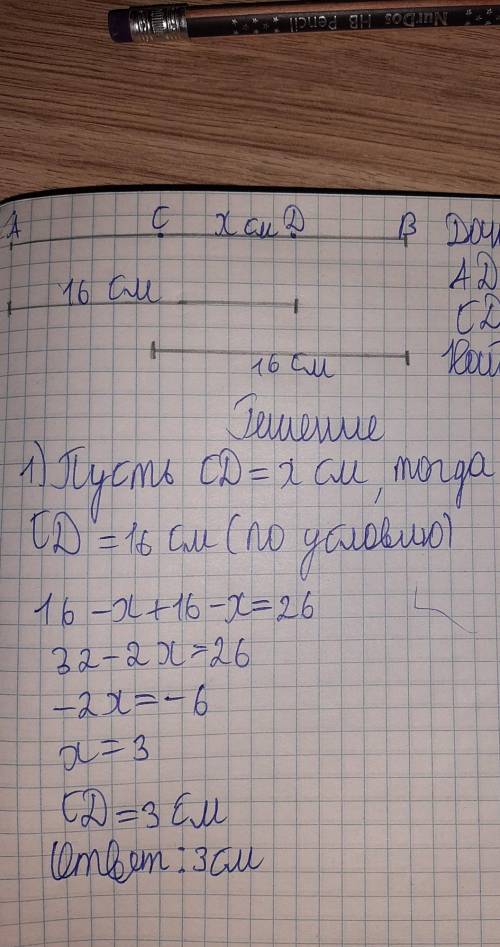 NurDos HB Pencil
A C x см D B
AD
16 см
CD
16 см
Решение
1) Пусть CD = x см, тогда
CD = 16 см (по условию)
16 - x + 16 - x = 26
32 - 2x = 26
-2x = -6
x = 3
CD = 3 см
Ответ: 3 см